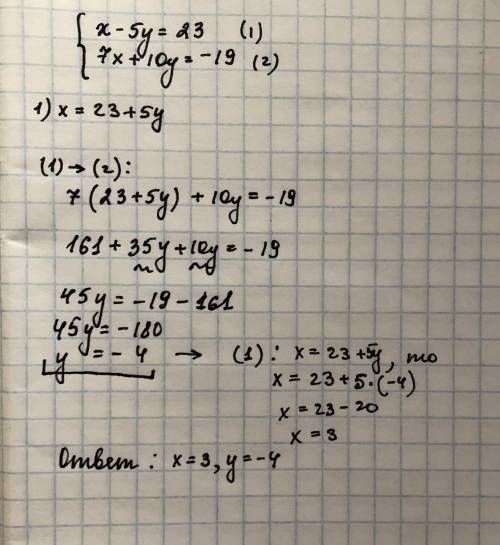 x - 5y = 23 (1)
7x + 10y = -19 (2)
1) x = 23 + 5y
(1) → (2):
7(23 + 5y) + 10y = -19
161 + 35y + 10y = -19
45y = -19 - 161
45y = -180
y = -4 → (1): x = 23 + 5y, то
x = 23 + 5·(-4)
x = 23 - 20
x = 3
Ответ: x = 3, y = -4